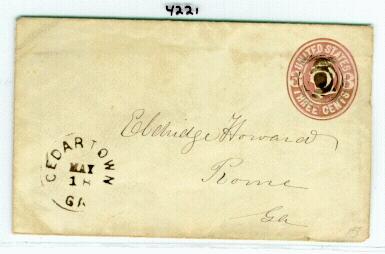 4221
UNITED STATES
THREE CENTS
Eldridge Howard
Rome
Ga
CEDARTOWN
MAY
GA